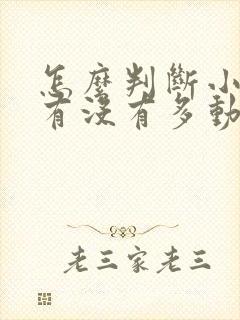 怎麼判斷小
有沒有多動
老三家老三